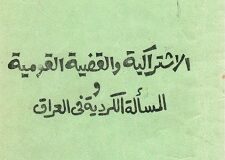 الاشتراكية والقضية القومية
و
المسألة الكردية في العراق